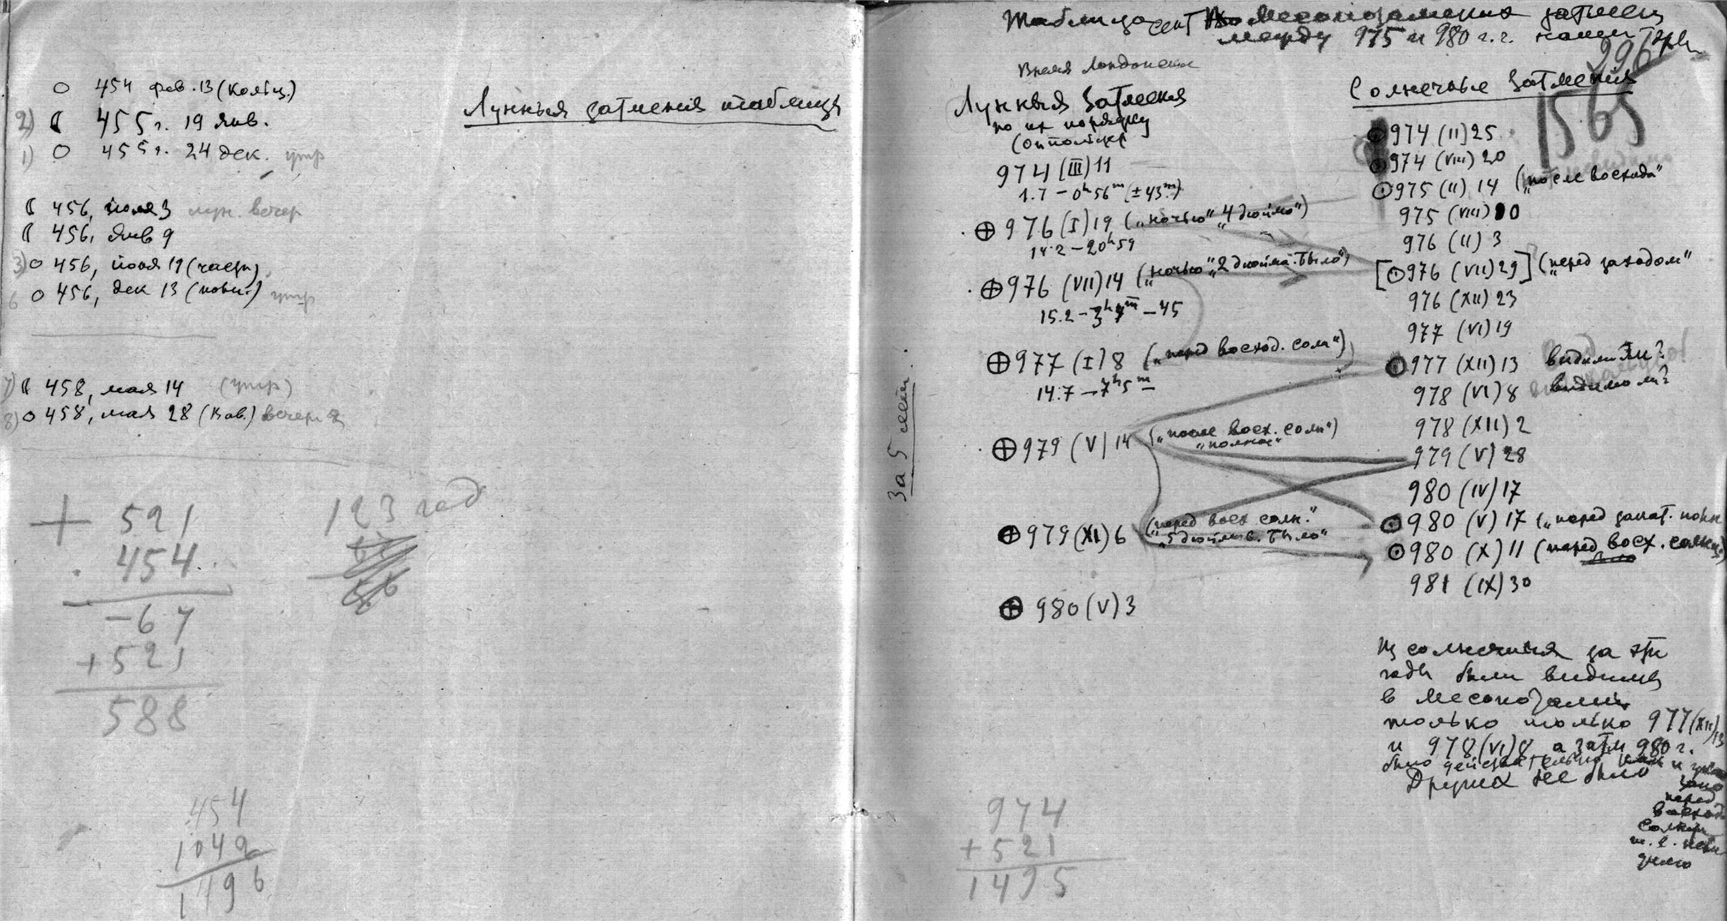 ○ 454 фев. 13 (Кольц.)
2) ☾ 455 г. 19 янв.
1) ○ 455 г. 24 дек. утр
☾ 456, июля 3 лун. вечер
☾ 456, янв 9
3) ○ 456, июля 19 (части)
6 ○ 456, дек 13 (полн.) утр
7) ☾ 458, мая 14 (утр)
8) ○ 458, мая 28 (Ков.) вечер
+ 521
454
-67
+521
588
123 год
454
1042
1496
Лунныя затмения таблица
Таблица месопотамских затмен
между 975 и 980 г.г. нашей эры
296
1565
За 5 лет.
Время Лондонское
Лунныя Затмения
по их порядку
974 (III) 11
1.7 – 0ʰ56ᵐ (±43ᵐ)
⊕ 976 (I) 19 („ночью“ „4 дюйма“)
14.2 – 20ʰ59
⊕ 976 (VII) 14 („ночью“ „2 дюйма. было“)
15.2 – 3ʰ7ᵐ – 45
⊕ 977 (I) 8 („перед восход. солн“)
14.7 – 7ʰ5ᵐ –
⊕ 979 (V) 14 („после восх. солн“)
„полное“
⊕ 979 (XI) 6 („перед восх солн.“
„5 дюйм в. было“
⊕ 980 (V) 3
974
+521
1495
Солнечные Затмения
⊙ 974 (II) 25
⊙ 974 (VIII) 20
⊙ 975 (II) 14 („после восхода“
975 (VIII) 10
976 (II) 3
[⊙ 976 (VII) 29] („перед заходом“
976 (XII) 23
977 (VI) 19
⊙ 977 (XII) 13 видимо ли?
978 (VI) 8 видимо ли?
978 (XII) 2
979 (V) 28
980 (IV) 17
⊙ 980 (V) 17 („перед закат.
⊙ 980 (X) 11 (перед восх. солнц)
981 (IX) 30
Из солнечных за эти
годы были видимы
в Месопотамии
только только 977 (XII) 13
и 978 (VI) 8, а затм 980 г.
было действительно
Других не было
перед
восход
солнца
т. е.